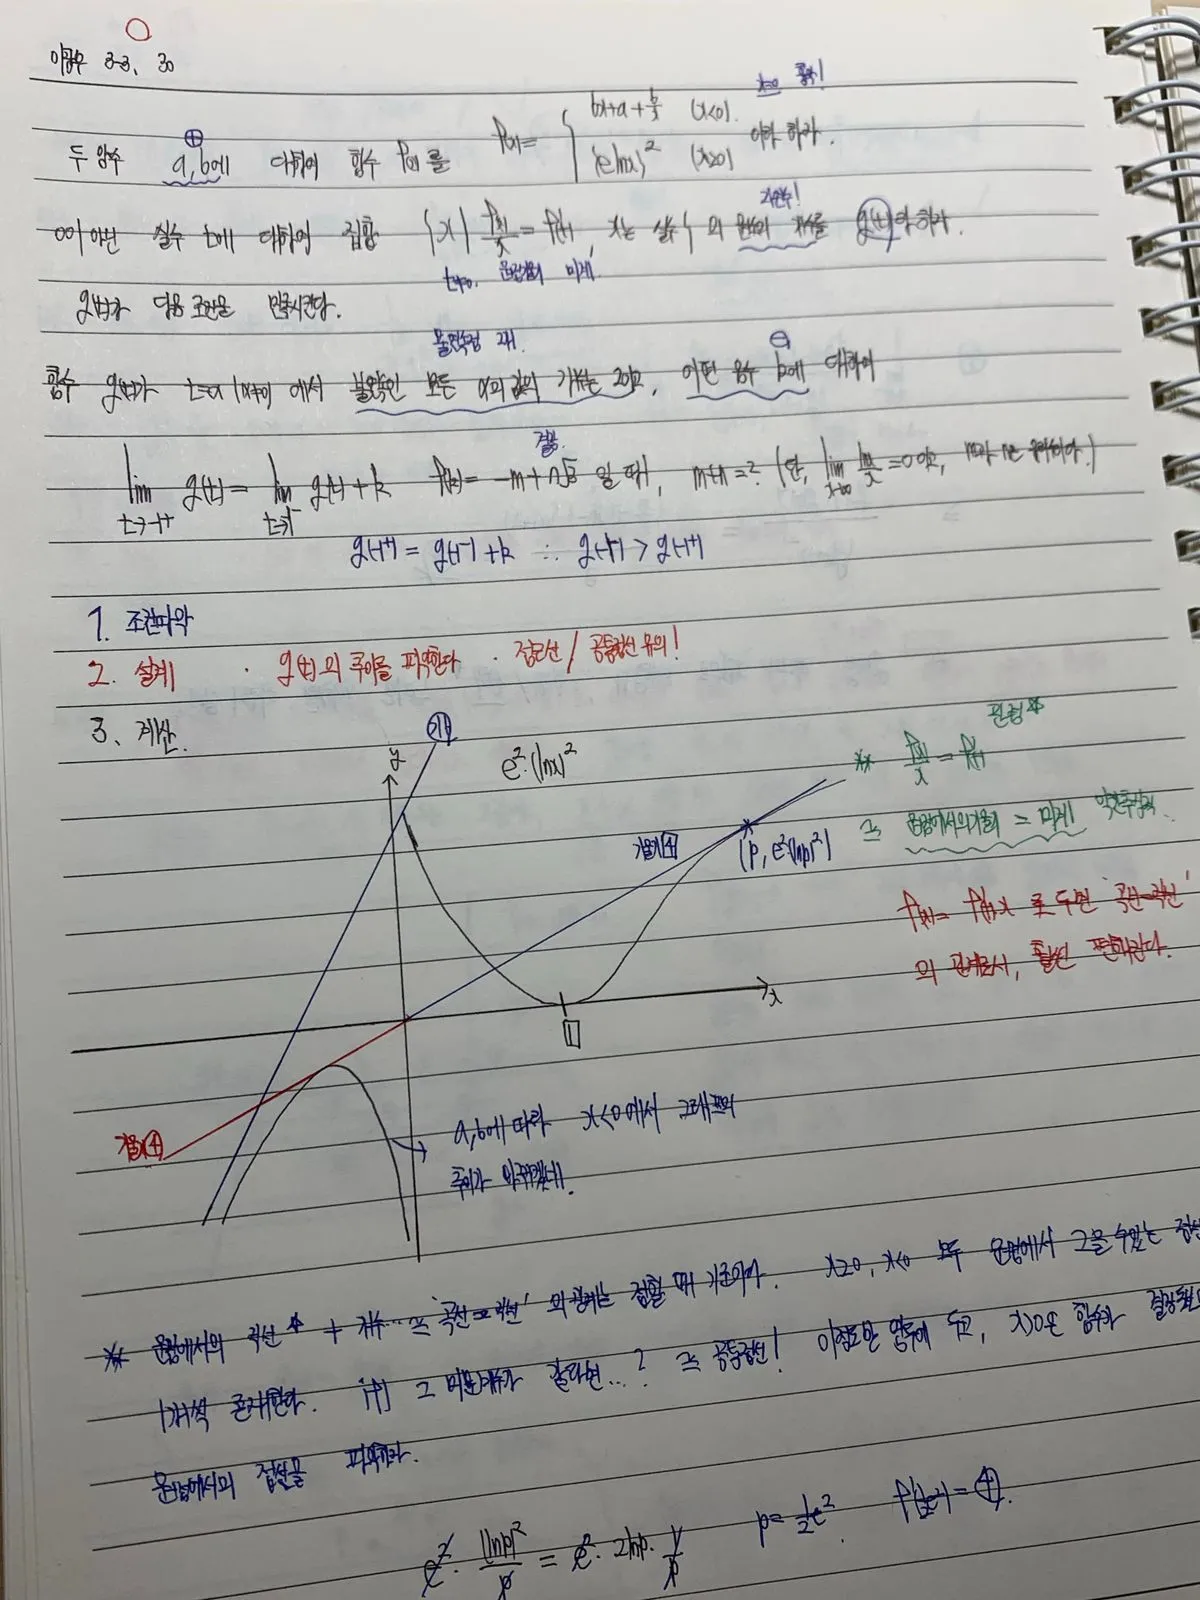 이광우 3-3, 30
x=0 중복!
두 양수 a,b에 대하여 함수 f(x)를 f(x)= { bx+a+b/x (x<0) (e lnx)^2 (x≥0) 이라 하자.
⊕
자연수!
0이 아닌 실수 t에 대하여 집합 {x| f(x)/x = f'(t), x는 실수}의 원소의 개수를 g(t)라 하자.
g(t)가 다음 조건을 만족시킨다.
불연속점 2개. ⊖
함수 g(t)가 t=α (α≠0)에서 불연속인 모든 α의 값의 개수는 2이고, 어떤 음수 k에 대하여
lim t→-1+ g(t) = lim t→-1- g(t)+k f(2)=-m+n√3 일 때, m+n=? (단, lim x→∞ lnx/x=0이고, m과 n은 유리수이다.)
g(-1+) = g(-1-)+k ∴ g(-1-) > g(-1+)
1. 조건파악
2. 설계 · g(t)의 추이를 파악한다 · 점근선/공통접선 유의!
3. 계산.
관점*
y e^2·(lnx)^2 ** f(x)/x = f'(t)
기울기⊞ (p, e^2(lnp)^2) ≃ 원점에서의 기울기 = 미계
f(x)= f'(t)x 로 두면 '곡선-직선'
의 관계로서, 훨씬 편해진다.
x
1
기울기⊕
a,b에 따라 x<0에서 그래프의
추이가 바뀌겠네.
** 원점에서의 직선* + 개수... ≃ '곡선=직선'의 관계는 접할 때 기준이다. x≥0, x<0 모두 원점에서 그을 수 있는 접선
1개씩 존재한다. if) 그 미분계수가 같다면...? ≃ 공통접선! 이점도 염두에 두고, x>0은 함수가 결정됐으
원점에서의 접선을 파악하자.
e^2· (lnp)^2/p = e^2· 2lnp· 1/p p=1/2e^2 f'(1/2e^2)=⊕.